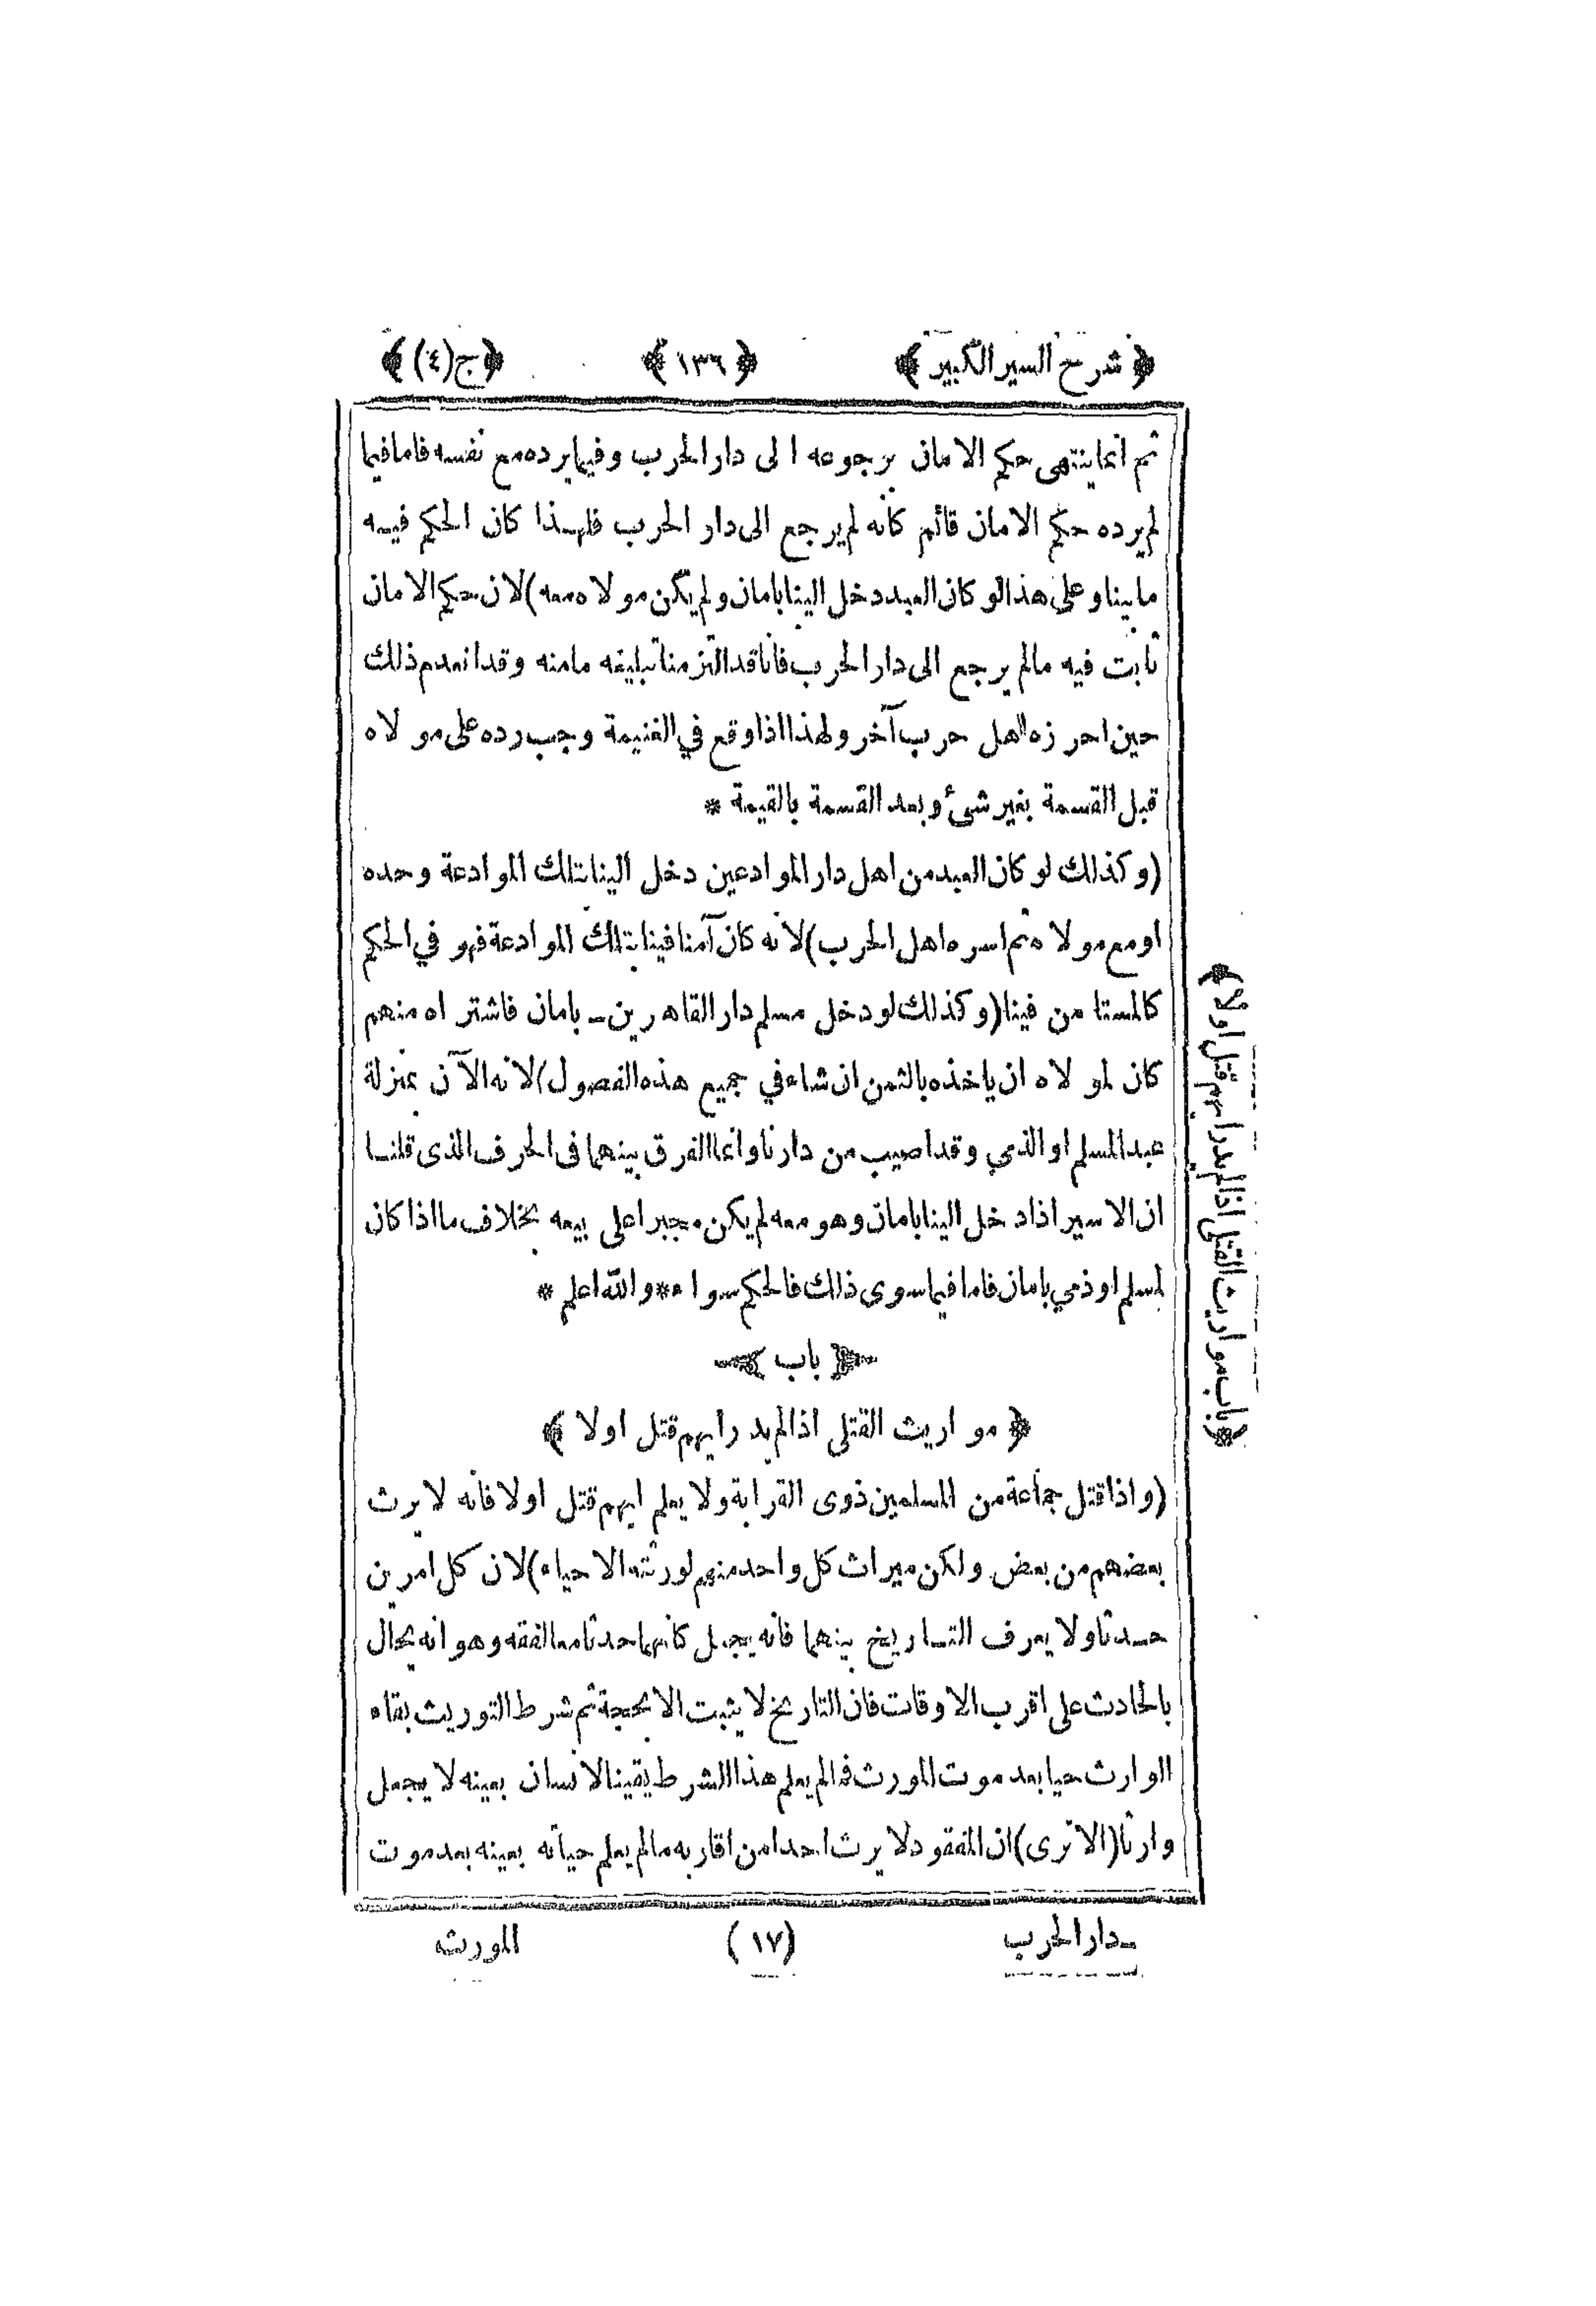 ﴿ شرح السير الكبير ﴾ ﴿ ١٣٦ ﴾ ﴿ ج(٤) ﴾
ثم انما ينتهى حكم الامان برجوعه الى دار الحرب وفيما يرده مع نفسه فاما فيما
لم يرده حكم الامان قائم كانه لم يرجع الى دار الحرب فلهذا كان الحكم فيه
ما بينا وعلى هذا لو كان العبد دخل الينا بامان ولم يكن مولاه معه) لان حكم الامان
ثابت فيه مالم يرجع الى دار الحرب فانا قد التزمنا تبليغه مامنه وقد انعدم ذلك
حين احرزه اهل حرب آخر ولهذا اذا وقع في الغنيمة وجب رده على مولاه
قبل القسمة بغير شئ وبعد القسمة بالقيمة *
(وكذلك لو كان العبد من اهل دار الموادعين دخل الينا بتلك الموادعة وحده
او مع مولاه ثم اسره اهل الحرب) لانه كان آمنا فينا بتلك الموادعة فهو في الحكم
كالمستامن فينا (وكذلك لو دخل مسلم دار القاهرين ـ بامان فاشتراه منهم
كان لمولاه ان ياخذه بالثمن ان شاء في جميع هذه الفصول) لانه الآن بمنزلة
عبد المسلم او الذمي وقد اصيب من دارنا وانما الفرق بينهما فى الحرف الذى قلنا
ان الاسير اذا دخل الينا بامان وهو معه لم يكن مجبرا على بيعه بخلاف ما اذا كان
لمسلم او ذمي بامان فاما فيما سوى ذلك فالحكم سواء ** والله اعلم *
﴿ باب ﴾
﴿ مواريث القتلى اذا لم يدر ايهم قتل اولا ﴾
(واذا قتل جماعة من المسلمين ذوى القرابة ولا يعلم ايهم قتل اولا فانه لا يرث
بعضهم من بعض ولكن ميراث كل واحد منهم لورثته الاحياء) لان كل امرين
حدثا ولا يعرف التاريخ بينهما فانه يجعل كانهما حدثا معا لفقه وهو انه يحال
بالحادث على اقرب الاوقات فان التاريخ لا يثبت الا بحجة ثم شرط التوريث بقاء
الوارث حيا بعد موت المورث فما لم يعلم هذا الشرط يقينا لانسان بعينه لا يجعل
وارثا (الا ترى) ان المفقود لا يرث احدا من اقاربه مالم يعلم حياته بعينه بعد موت
ـ دار الحرب (١٧) المورث
﴿ باب مواريث القتلى اذا لم يدر ايهم قتل اولا ﴾